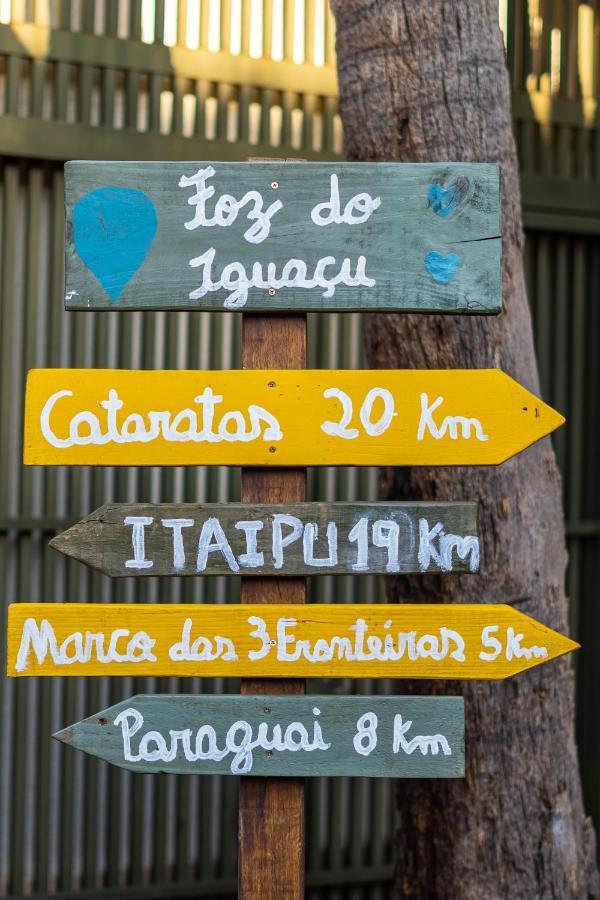 Foz do
Iguaçu
Cataratas 20 Km
ITAIPU 19 Km
Marco das 3 Fronteiras 5 Km
Paraguai 8 Km